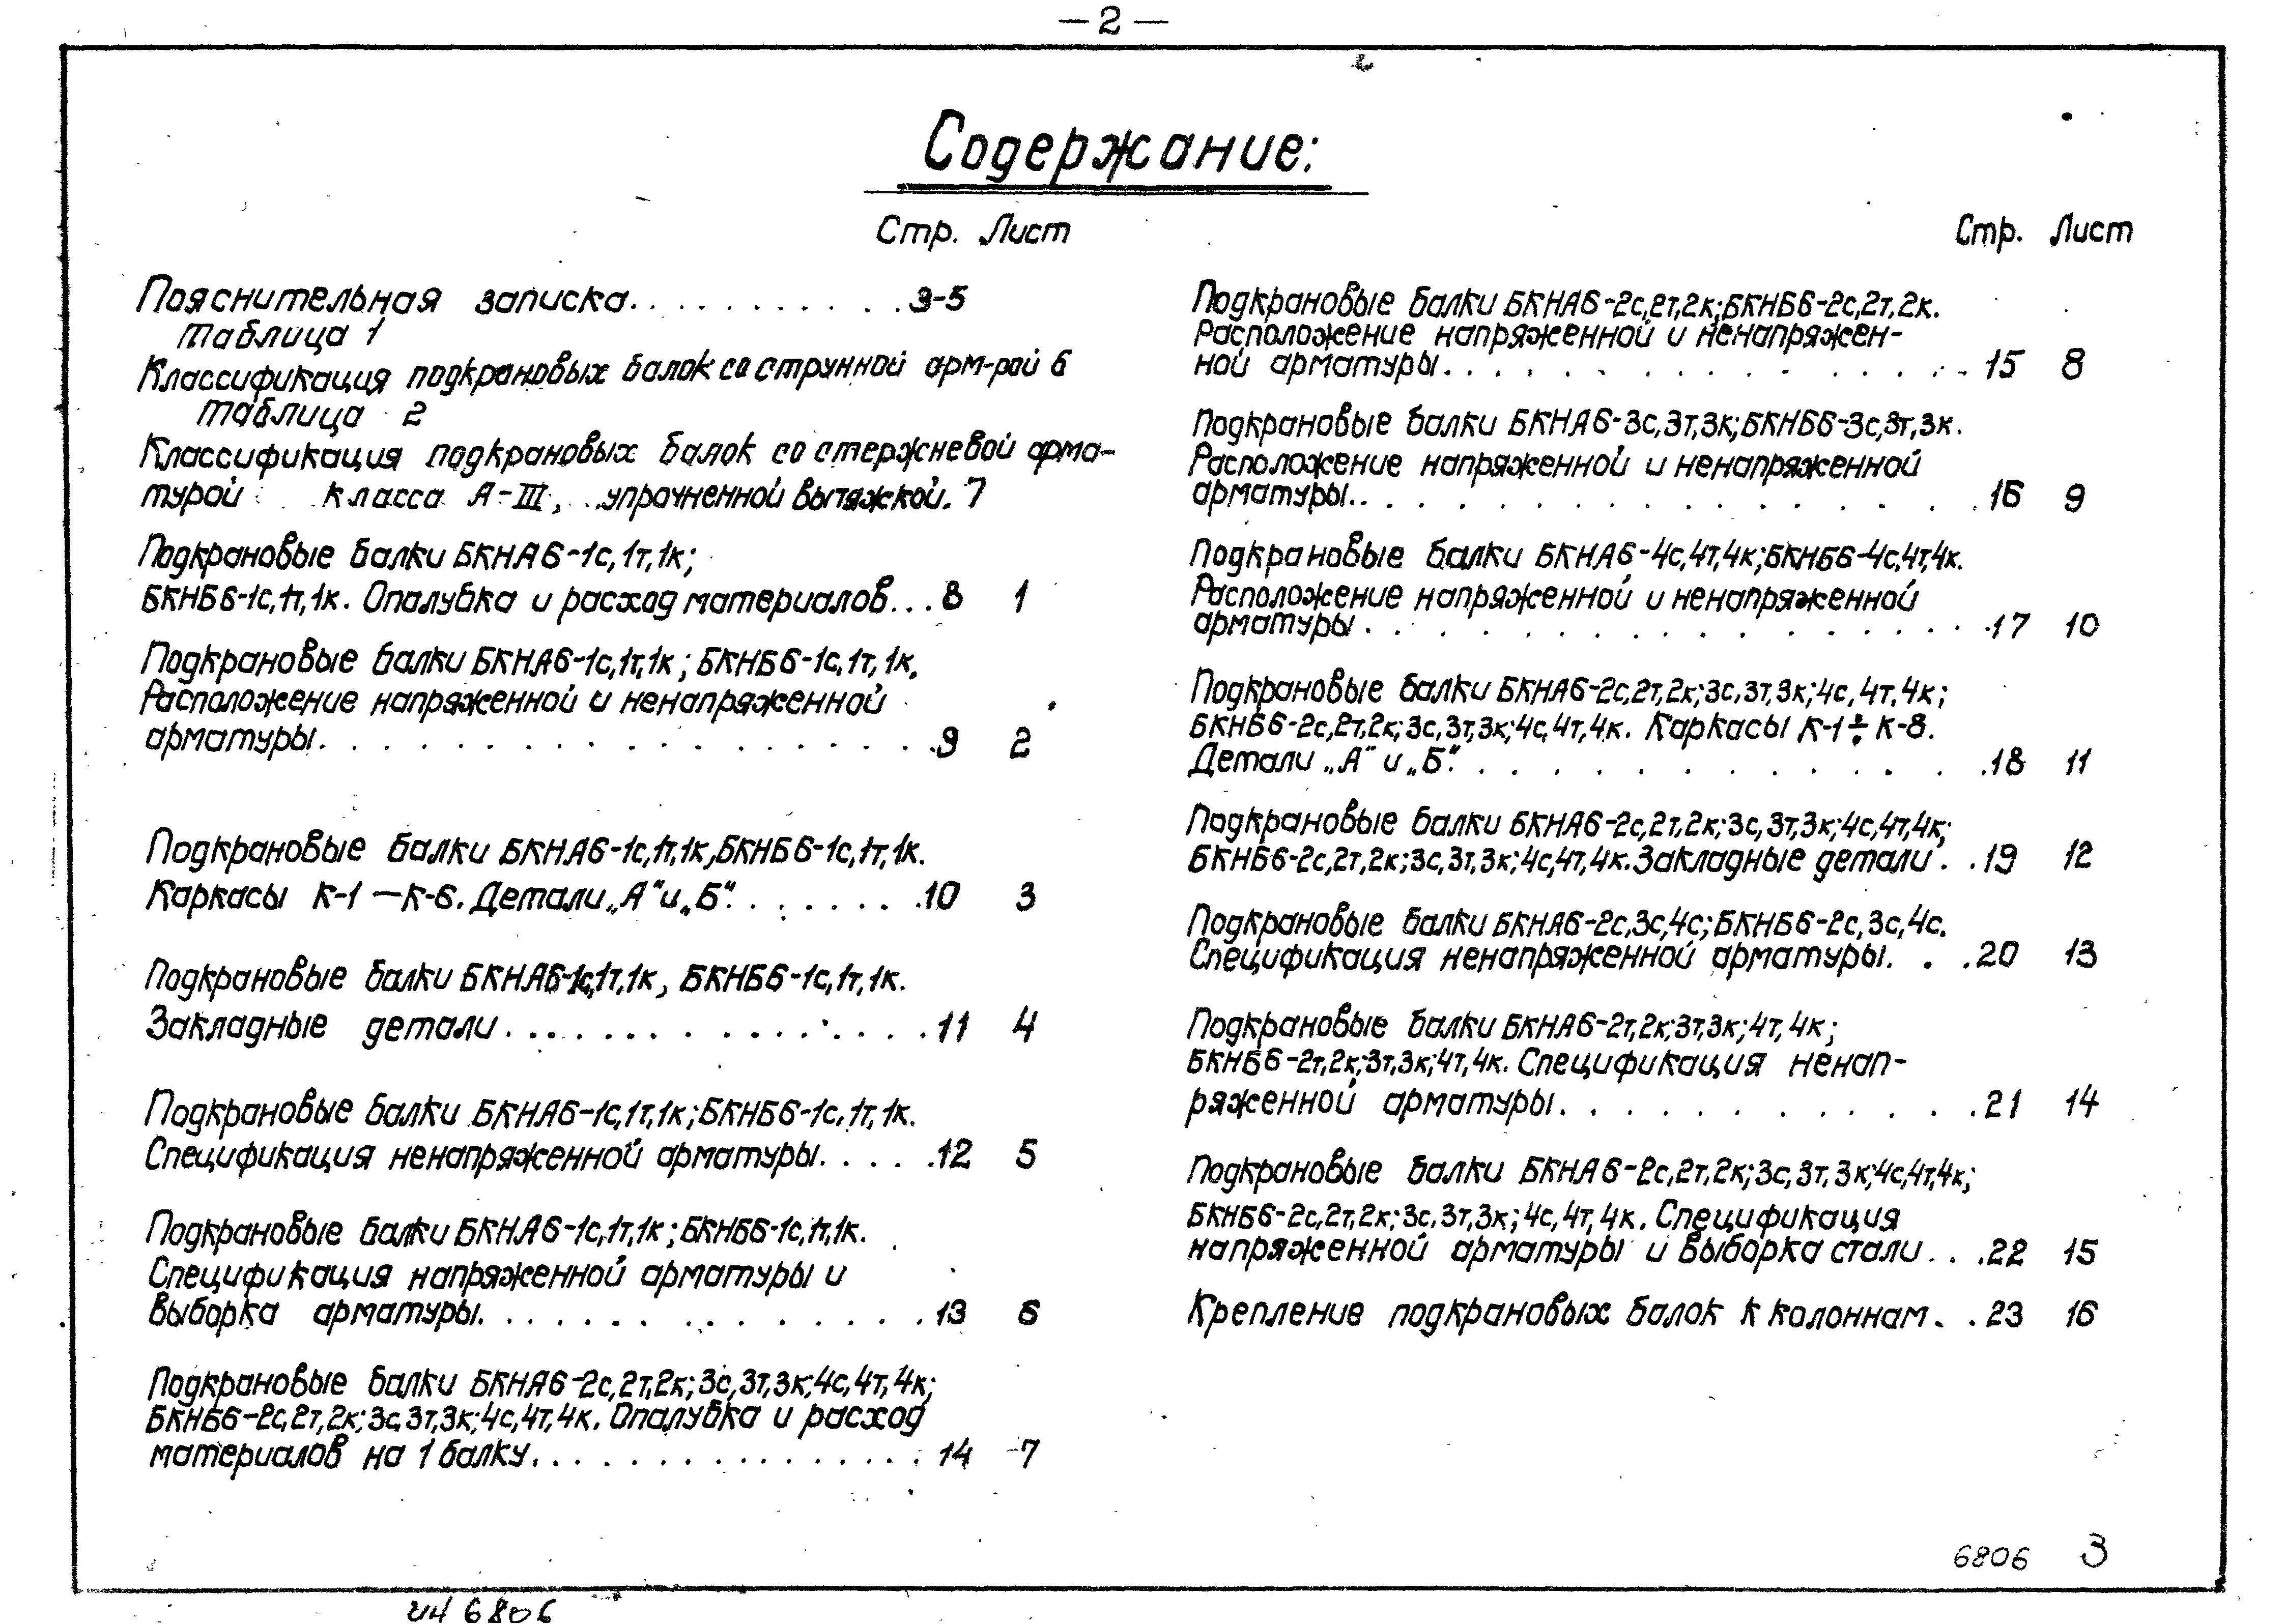 —2—
Содержание:
Стр. Лист
Пояснительная записка. . . . . . . . . . . 3-5
Таблица 1
Классификация подкрановых балок со струнной арм-рой 6
Таблица 2
Классификация подкрановых балок со стержневой арма-
турой класса А-III, упрочненной вытяжкой. 7
Подкрановые балки БКНА6-1с,1т,1к;
БКНБ6-1с,1т,1к. Опалубка и расход материалов... 8 1
Подкрановые балки БКНА6-1с,1т,1к; БКНБ6-1с,1т,1к.
Расположение напряженной и ненапряженной
арматуры. . . . . . . . . . . . . . . . . . 9 2
Подкрановые балки БКНА6-1с,1т,1к,БКНБ6-1с,1т,1к.
Каркасы К-1 —К-6. Детали „А" и „Б". . . . . . . . 10 3
Подкрановые балки БКНА6-1с,1т,1к, БКНБ6-1с,1т,1к.
Закладные детали. . . . . . . . . . . . . . . 11 4
Подкрановые балки БКНА6-1с,1т,1к;БКНБ6-1с,1т,1к.
Спецификация ненапряженной арматуры. . . . . 12 5
Подкрановые балки БКНА6-1с,1т,1к;БКНБ6-1с,1т,1к.
Спецификация напряженной арматуры и
выборка арматуры. . . . . . . . . . . . . . . 13 6
Подкрановые балки БКНА6-2с,2т,2к;3с,3т,3к;4с,4т,4к;
БКНБ6-2с,2т,2к;3с,3т,3к;4с,4т,4к. Опалубка и расход
материалов на 1 балку. . . . . . . . . . . . . . . 14 7
Стр. Лист
Подкрановые балки БКНА6-2с,2т,2к;БКНБ6-2с,2т,2к.
Расположение напряженной и ненапряжен-
ной арматуры. . . . . . . . . . . . . . . 15 8
Подкрановые балки БКНА6-3с,3т,3к;БКНБ6-3с,3т,3к.
Расположение напряженной и ненапряженной
арматуры. . . . . . . . . . . . . . . . . 16 9
Подкрановые балки БКНА6-4с,4т,4к;БКНБ6-4с,4т,4к.
Расположение напряженной и ненапряженной
арматуры. . . . . . . . . . . . . . . . . 17 10
Подкрановые балки БКНА6-2с,2т,2к;3с,3т,3к;4с,4т,4к;
БКНБ6-2с,2т,2к;3с,3т,3к;4с,4т,4к. Каркасы К-1÷К-8.
Детали „А" и „Б". . . . . . . . . . . . . 18 11
Подкрановые балки БКНА6-2с,2т,2к;3с,3т,3к;4с,4т,4к;
БКНБ6-2с,2т,2к;3с,3т,3к;4с,4т,4к. Закладные детали . . 19 12
Подкрановые балки БКНА6-2с,3с,4с;БКНБ6-2с,3с,4с.
Спецификация ненапряженной арматуры. . . 20 13
Подкрановые балки БКНА6-2т,2к;3т,3к;4т,4к;
БКНБ6-2т,2к;3т,3к;4т,4к. Спецификация ненап-
ряженной арматуры. . . . . . . . . . . . 21 14
Подкрановые балки БКНА6-2с,2т,2к;3с,3т,3к;4с,4т,4к;
БКНБ6-2с,2т,2к;3с,3т,3к;4с,4т,4к. Спецификация
напряженной арматуры и выборка стали . . . 22 15
Крепление подкрановых балок к колоннам. . 23 16
6806 3
6806